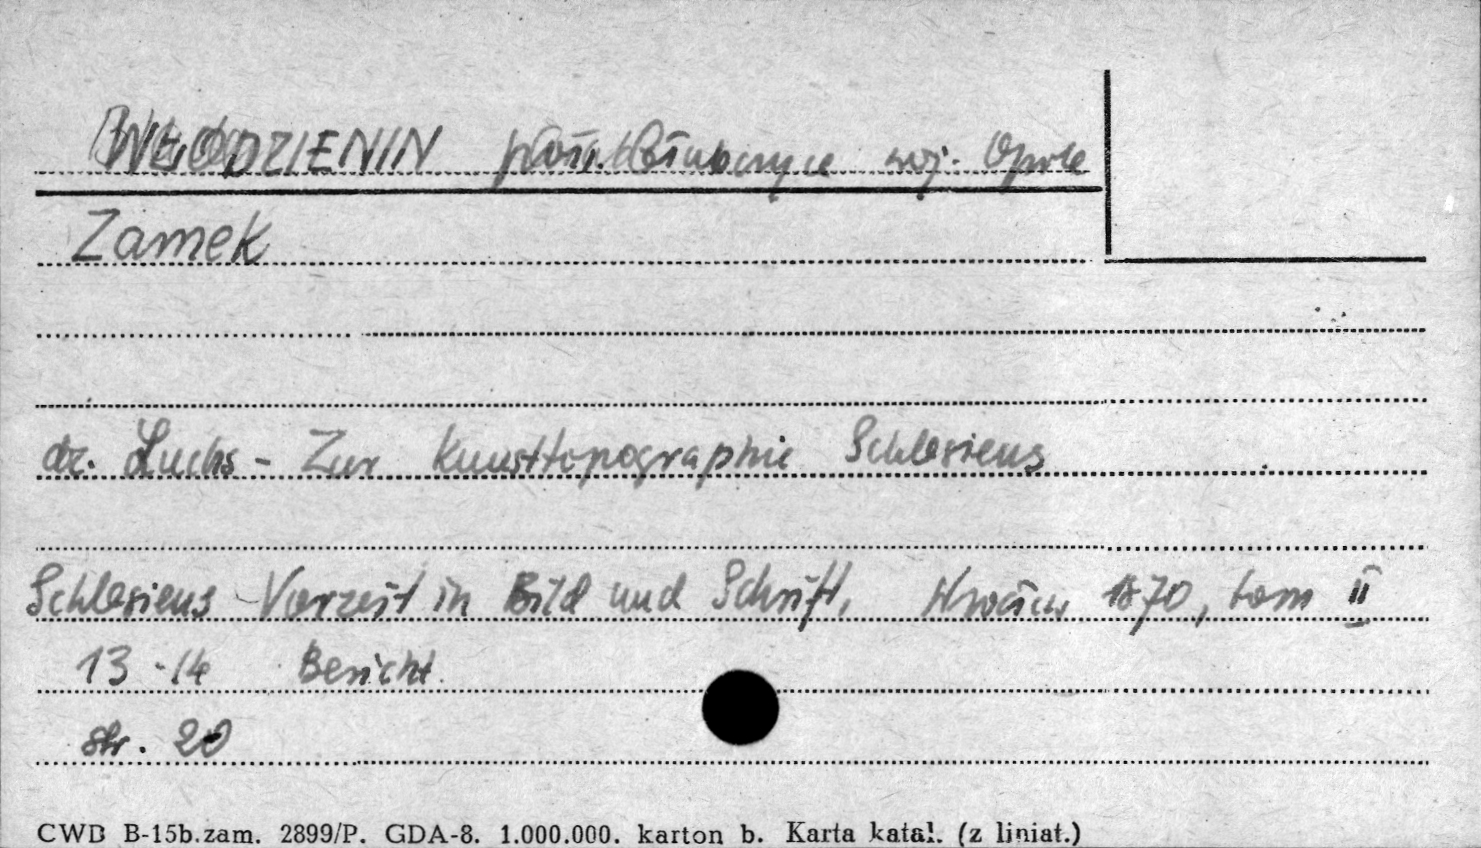 WŁODZIENIN pow. Głubczyce woj. Opole
Zamek
dr. Luchs - Zur Kunsttopographie Schlesiens
Schlesiens Vorzeit in Bild und Schrift, Wrocław 1870, tom II
13-14 Bericht.
str. 20
CWD B-15b.zam. 2899/P. GDA-8. 1.000.000. karton b. Karta katal. (z liniat.)